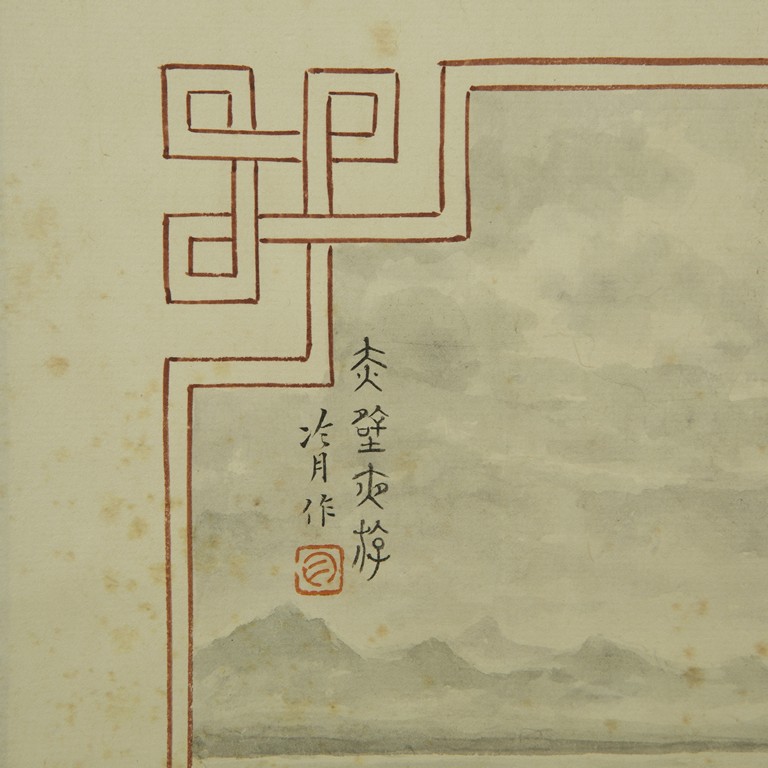 赤壁夜游
冷月作